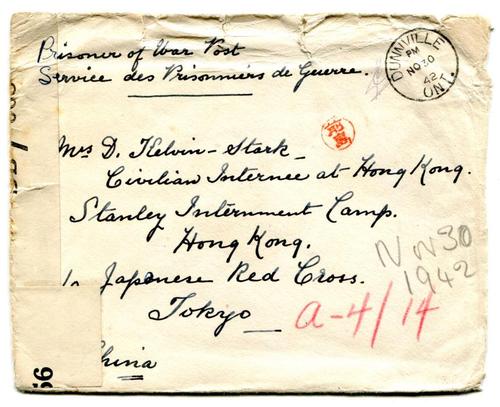 Prisoner of War Post
Service des Prisonniers de Guerre.
DUNNVILLE
PM
NO 30
42
ONT.
Mrs D. Kelvin-Stark
Civilian Internee at Hong Kong.
Stanley Internment Camp.
Hong Kong.
Japanese Red Cross.
Tokyo
China
Nov 30
1942
A-4/14
66